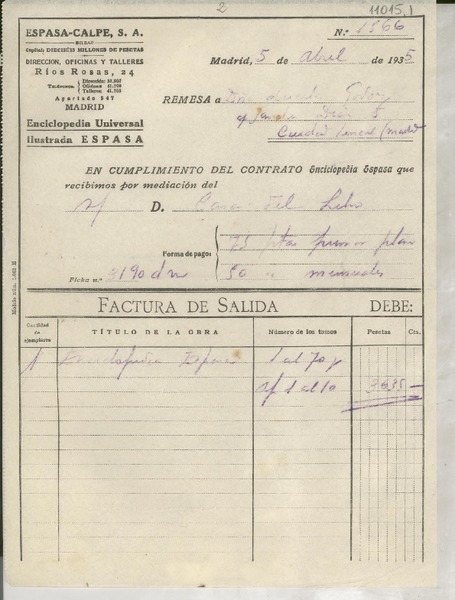 2
11015,1
ESPASA-CALPE, S. A.
BILBAO
Capital: DIECISÉIS MILLONES DE PESETAS
DIRECCIÓN, OFICINAS Y TALLERES
Ríos Rosas, 24
Teléfonos:
Apartado 547
MADRID
Enciclopedia Universal
Ilustrada ESPASA
N.º 1566
Madrid, 5 de abril de 1935
REMESA a
Ciudad Lineal (Madrid
EN CUMPLIMIENTO DEL CONTRATO Enciclopedia Espasa que
recibimos por mediación del
D. Casa del Libro
Forma de pago:
75 ptas primer plazo
50 " mensuales
Ficha n.º
FACTURA DE SALIDA DEBE:
Cantidad de ejemplares
TÍTULO DE LA OBRA
Número de los tomos
Pesetas
Cts.
1 Enciclopedia Espasa 1 al 70 y
ap 1 al 10 3635 —